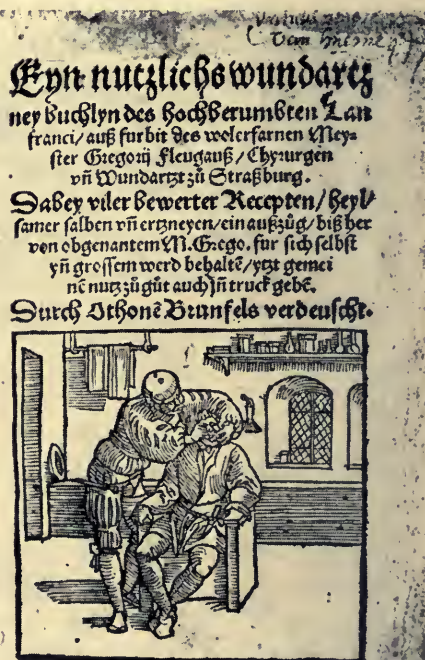 Eyn nutzlichs wundartz
ney buchlyn des hochberumbten Lan
franci/ auß furbit des wolerfarnen Mey-
ster Gregorij Fleugauß/ Chyrurgen
vñ Wundartzt zů Straßburg.
Dabey viler bewerter Recepten/ heyl/
samer salben vñ ertzneyen/ ein außzůg/ biß her
von obgenantem M. Grego. fur sich selbst
yñ grossem werd behaltẽ/ ytzt gemei
nẽ nutz zů gůt auch jñ truck gebẽ.
Durch Othonẽ Brunfels verdeuscht.